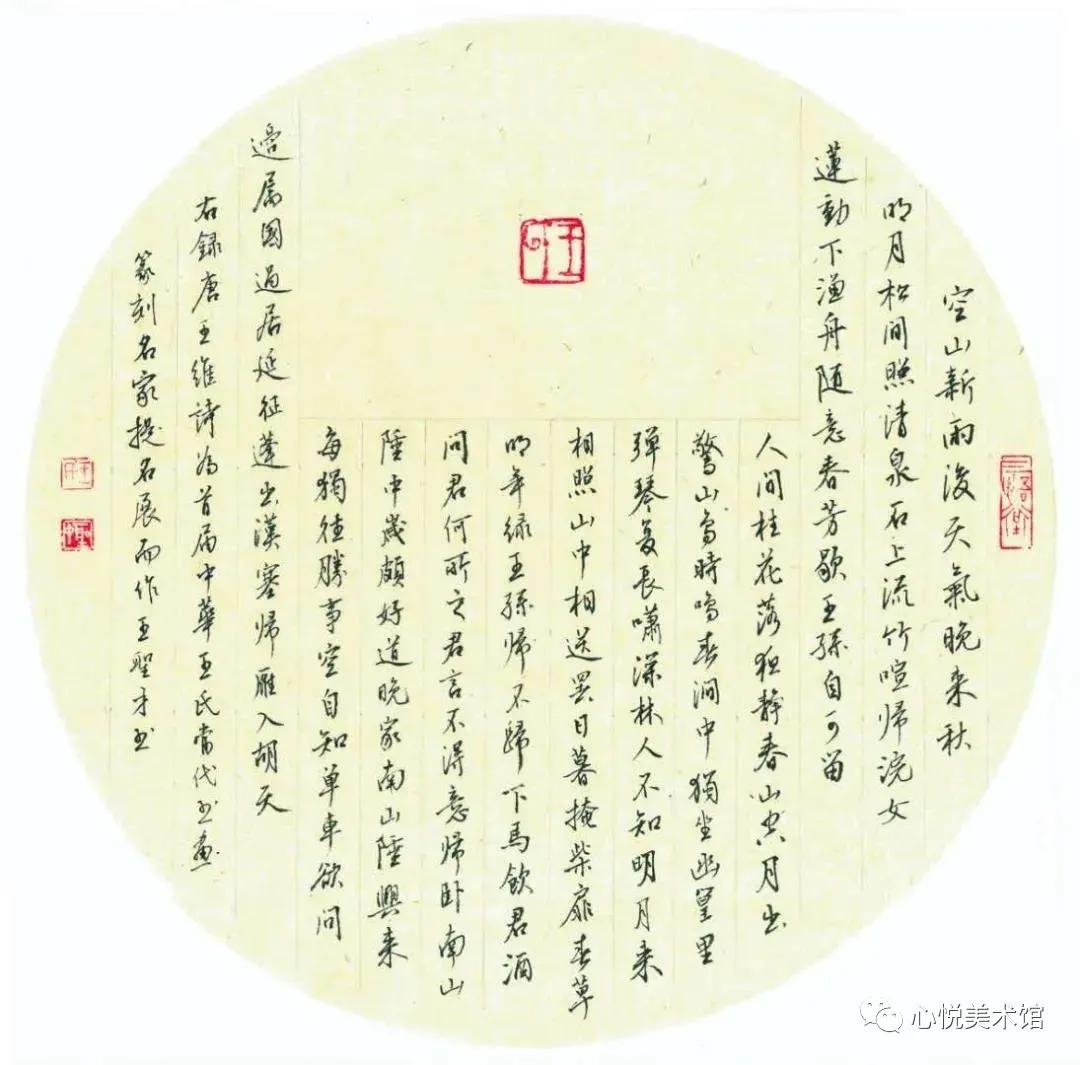 空山新雨後天氣晚来秋
明月松间照清泉石上流竹喧帰浣女
蓮動下漁舟随意春芳歇王孫自可留
人间桂花落独静春山空月出
驚山鸟時鸣春澗中獨坐幽篁里
弹琴复長嘯深林人不知明月来
相照山中相送罢日暮掩柴扉春草
明年绿王孫帰不歸下馬飲君酒
问君何所之君言不得意帰卧南山
陲中歲頗好道晚家南山陲興来
每獨往勝事空自知单車欲问
邊属國過居延征蓬出漢塞帰雁入胡天
右録唐王維詩为首届中華王氏當代书画
篆刻名家提名展而作王聖才书
心悦美术馆